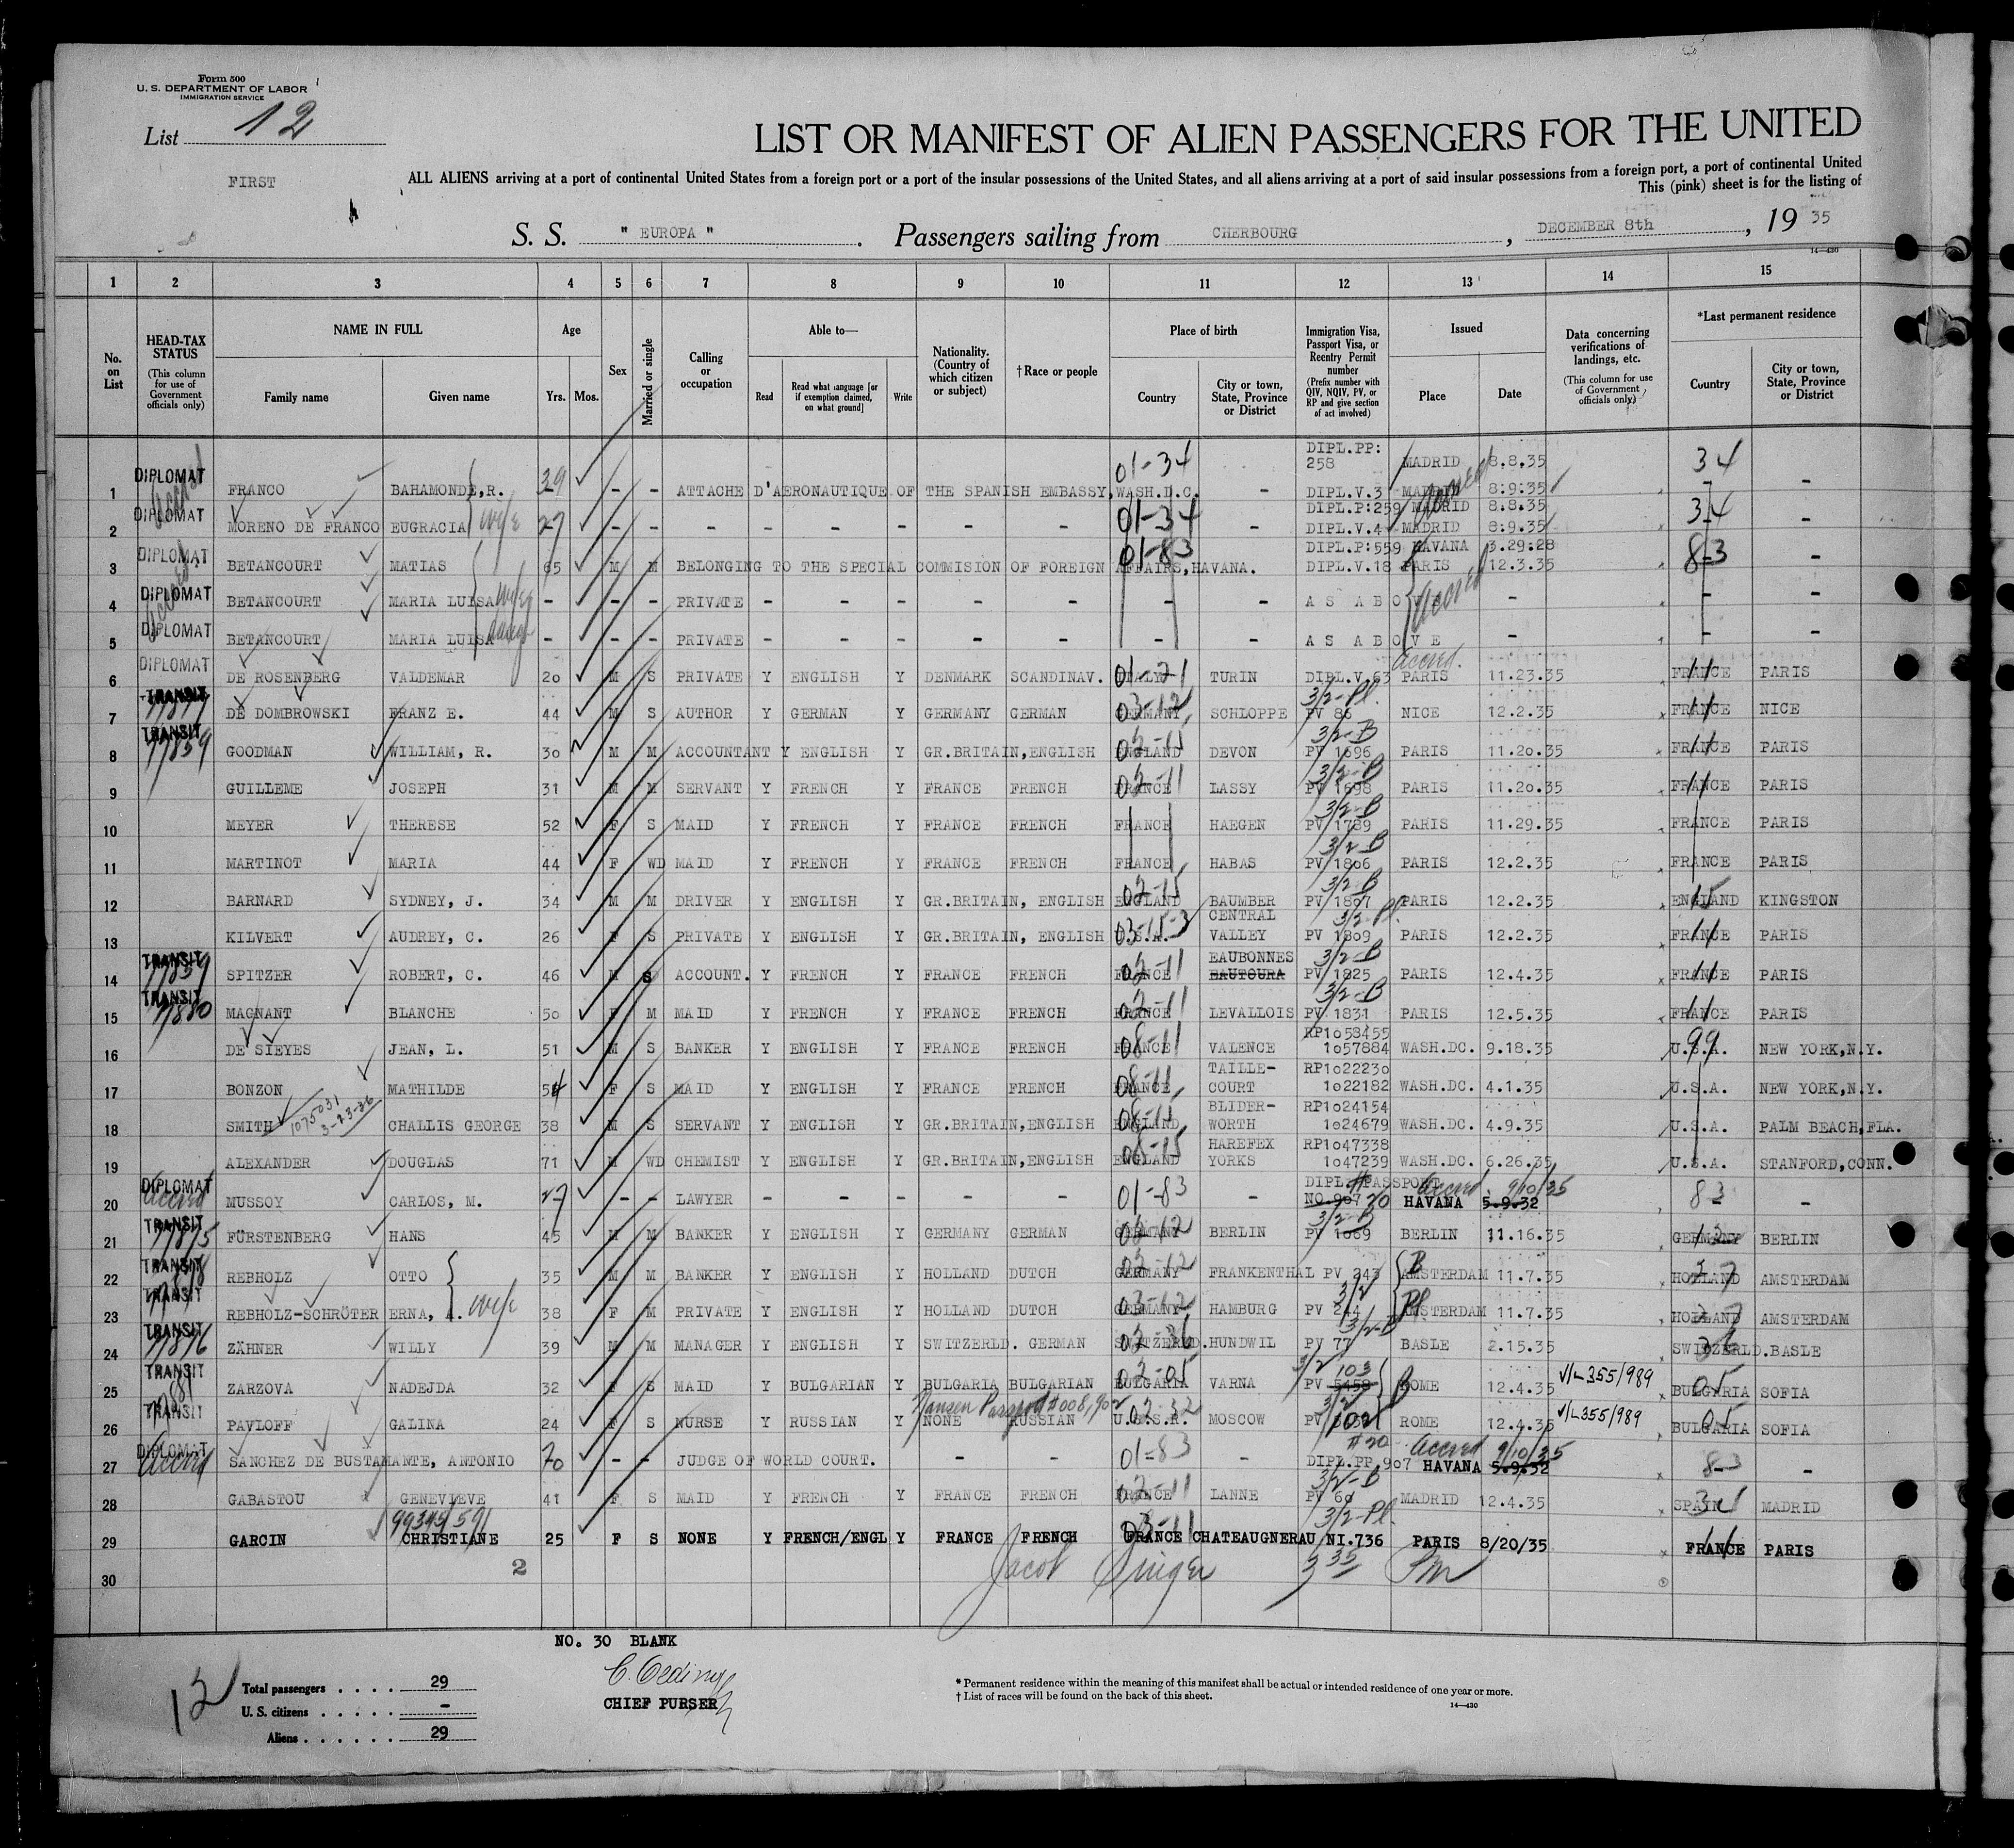 Form 500
U. S. DEPARTMENT OF LABOR
IMMIGRATION SERVICE
List 12
LIST OR MANIFEST OF ALIEN PASSENGERS FOR THE UNITED
FIRST
ALL ALIENS arriving at a port of continental United States from a foreign port or a port of the insular possessions of the United States, and all aliens arriving at a port of said insular possessions from a foreign port, a port of continental United
This (pink) sheet is for the listing of
S. S. " EUROPA " . Passengers sailing from CHERBOURG , DECEMBER 8th , 19 35
14—430
1 2 3 4 5 6 7 8 9 10 11 12 13 14 15
No. on List
HEAD-TAX STATUS (This column for use of Government officials only)
NAME IN FULL Family name Given name
Age Yrs. Mos.
Sex
Married or single
Calling or occupation
Able to— Read Read what language [or if exemption claimed, on what ground] Write
Nationality. (Country of which citizen or subject)
† Race or people
Place of birth Country City or town, State, Province or District
Immigration Visa, Passport Visa, or Reentry Permit number (Prefix number with QIV, NQIV, PV, or RP and give section of act involved)
Issued Place Date
Data concerning verifications of landings, etc. (This column for use of Government officials only)
*Last permanent residence Country City or town, State, Province or District
1 DIPLOMAT FRANCO BAHAMONDE,R. 39 - - ATTACHE D'AERONAUTIQUE OF THE SPANISH EMBASSY,WASH.D.C. 01-34 - DIPL.PP: 258 MADRID 8.8.35 DIPL.V.3 MADRID 8:9:35 34 -
2 DIPLOMAT MORENO DE FRANCO EUGRACIA wife 27 - - - - - - - - 01-34 - DIPL.P:259 MADRID 8.8.35 DIPL.V.4 MADRID 8:9.35 34 -
3 DIPLOMAT BETANCOURT MATIAS 65 M M BELONGING TO THE SPECIAL COMMISION OF FOREIGN AFFAIRS,HAVANA. 01-83 DIPL.P:559 HAVANA 3.29:28 DIPL.V.18 PARIS 12.3.35 83 -
4 DIPLOMAT BETANCOURT MARIA LUISA wife - - - PRIVATE - - - - - - - AS ABOVE - - -
5 DIPLOMAT BETANCOURT MARIA LUISA - - - PRIVATE - - - - - - - AS ABOVE - - -
6 DIPLOMAT DE ROSENBERG VALDEMAR 20 M S PRIVATE Y ENGLISH Y DENMARK SCANDINAV. ITALY 01-21 TURIN DIPL.V.63 Accred. PARIS 11.23.35 FRANCE 11 PARIS
7 TRANSIT DE DOMBROWSKI FRANZ E. 44 M S AUTHOR Y GERMAN Y GERMANY GERMAN GERMANY 03-12 SCHLOPPE 3/2-Pl. PV 86 NICE 12.2.35 FRANCE 11 NICE
8 TRANSIT 77859 GOODMAN WILLIAM, R. 30 M M ACCOUNTANT Y ENGLISH Y GR.BRITAIN,ENGLISH ENGLAND 02-15 DEVON 3/2-B PV 1696 PARIS 11.20.35 FRANCE 11 PARIS
9 GUILLEME JOSEPH 31 M M SERVANT Y FRENCH Y FRANCE FRENCH FRANCE 02-11 LASSY 3/2-B PV 1698 PARIS 11.20.35 FRANCE 11 PARIS
10 MEYER THERESE 52 F S MAID Y FRENCH Y FRANCE FRENCH FRANCE HAEGEN 3/2-B PV 1789 PARIS 11.29.35 FRANCE PARIS
11 MARTINOT MARIA 44 F WD MAID Y FRENCH Y FRANCE FRENCH FRANCE HABAS 3/2-B PV 1806 PARIS 12.2.35 FRANCE PARIS
12 BARNARD SYDNEY, J. 34 M M DRIVER Y ENGLISH Y GR.BRITAIN, ENGLISH ENGLAND 02-15 BAUMBER 3/2-B PV 1807 PARIS 12.2.35 ENGLAND 15 KINGSTON
13 KILVERT AUDREY, C. 26 F S PRIVATE Y ENGLISH Y GR.BRITAIN, ENGLISH U.S.A. 03-15-3 CENTRAL VALLEY 3/2-Pl. PV 1809 PARIS 12.2.35 FRANCE 11 PARIS
14 TRANSIT 77859 SPITZER ROBERT, C. 46 M S ACCOUNT. Y FRENCH Y FRANCE FRENCH FRANCE 02-11 EAUBONNES BAUTOURA 3/2-B PV 1825 PARIS 12.4.35 FRANCE 11 PARIS
15 TRANSIT 77880 MAGNANT BLANCHE 50 F M MAID Y FRENCH Y FRANCE FRENCH FRANCE 02-11 LEVALLOIS 3/2-B PV 1831 PARIS 12.5.35 FRANCE 11 PARIS
16 DE SIEYES JEAN, L. 51 M S BANKER Y ENGLISH Y FRANCE FRENCH FRANCE 08-11 VALENCE RP1058455 1057884 WASH.DC. 9.18.35 U.S.A. 99 NEW YORK,N.Y.
17 BONZON MATHILDE 54 F S MAID Y ENGLISH Y FRANCE FRENCH FRANCE 08-11 TAILLE- COURT RP1022230 1022182 WASH.DC. 4.1.35 U.S.A. NEW YORK,N.Y.
18 SMITH 1075031 3-23-36 CHALLIS GEORGE 38 M S SERVANT Y ENGLISH Y GR.BRITAIN,ENGLISH ENGLAND 08-15 BLIDER- WORTH RP1024154 1024679 WASH.DC. 4.9.35 U.S.A. PALM BEACH,FLA.
19 ALEXANDER DOUGLAS 71 M WD CHEMIST Y ENGLISH Y GR.BRITAIN,ENGLISH ENGLAND 08-15 HAREFEX YORKS RP1047338 1047239 WASH.DC. 6.26.35 U.S.A. STANFORD,CONN.
20 DIPLOMAT Accred MUSSOY CARLOS, M. 27 - - LAWYER - - - - - 01-83 - DIPL.PASSPORT NO.907 #20 Accred HAVANA 5.9.32 9/10/35 83 -
21 TRANSIT 77875 FÜRSTENBERG HANS 45 M M BANKER Y ENGLISH Y GERMANY GERMAN GERMANY 02-12 BERLIN 3/2-B PV 1069 BERLIN 11.16.35 GERMANY 12 BERLIN
22 TRANSIT REBHOLZ OTTO 35 M M BANKER Y ENGLISH Y HOLLAND DUTCH GERMANY 02-12 FRANKENTHAL PV 243 B AMSTERDAM 11.7.35 HOLLAND 27 AMSTERDAM
23 TRANSIT REBHOLZ-SCHRÖTER ERNA, A. wife 38 F M PRIVATE Y ENGLISH Y HOLLAND DUTCH GERMANY 03-12 HAMBURG 3/2 PV 244 Pl AMSTERDAM 11.7.35 HOLLAND 27 AMSTERDAM
24 TRANSIT 77876 ZÄHNER WILLY 39 M M MANAGER Y ENGLISH Y SWITZERLD. GERMAN SWITZERLD. 02-36 HUNDWIL 3/2-B PV 77 BASLE 2.15.35 SWITZERLD. 36 BASLE
25 TRANSIT ZARZOVA NADEJDA 32 F S MAID Y BULGARIAN Y BULGARIA BULGARIAN BULGARIA 02-05 VARNA 3/2 103 PV 5458 B ROME 12.4.35 V/L355/989 BULGARIA 05 SOFIA
26 TRANSIT PAVLOFF GALINA 24 F S NURSE Y RUSSIAN Y NONE Nansen Passport #008,902 RUSSIAN U.S.S.R. 02-32 MOSCOW 3/2 PV 102 ROME 12.4.35 V/L355/989 BULGARIA 05 SOFIA
27 DIPLOMAT Accred SANCHEZ DE BUSTAMANTE, ANTONIO 70 - - JUDGE OF WORLD COURT. - - 01-83 - #20 DIPL.PP.907 Accred HAVANA 5.9.32 9/10/35 83 -
28 GABASTOU GENEVIEVE 41 F S MAID Y FRENCH Y FRANCE FRENCH FRANCE 02-11 LANNE 3/2-B PV 60 MADRID 12.4.35 SPAIN 34 MADRID
29 GARCIN 99345/591 CHRISTIANE 25 F S NONE Y FRENCH/ENGL Y FRANCE FRENCH FRANCE 03-11 CHATEAUGNERAU 3/2-Pl. NI.736 PARIS 8/20/35 FRANCE 11 PARIS
30 2 Jacob Singer 3 35 PM
NO. 30 BLANK
12
Total passengers . . . . 29
U. S. citizens . . . . . -
Aliens . . . . . . 29
CHIEF PURSER
* Permanent residence within the meaning of this manifest shall be actual or intended residence of one year or more.
† List of races will be found on the back of this sheet.
14—430